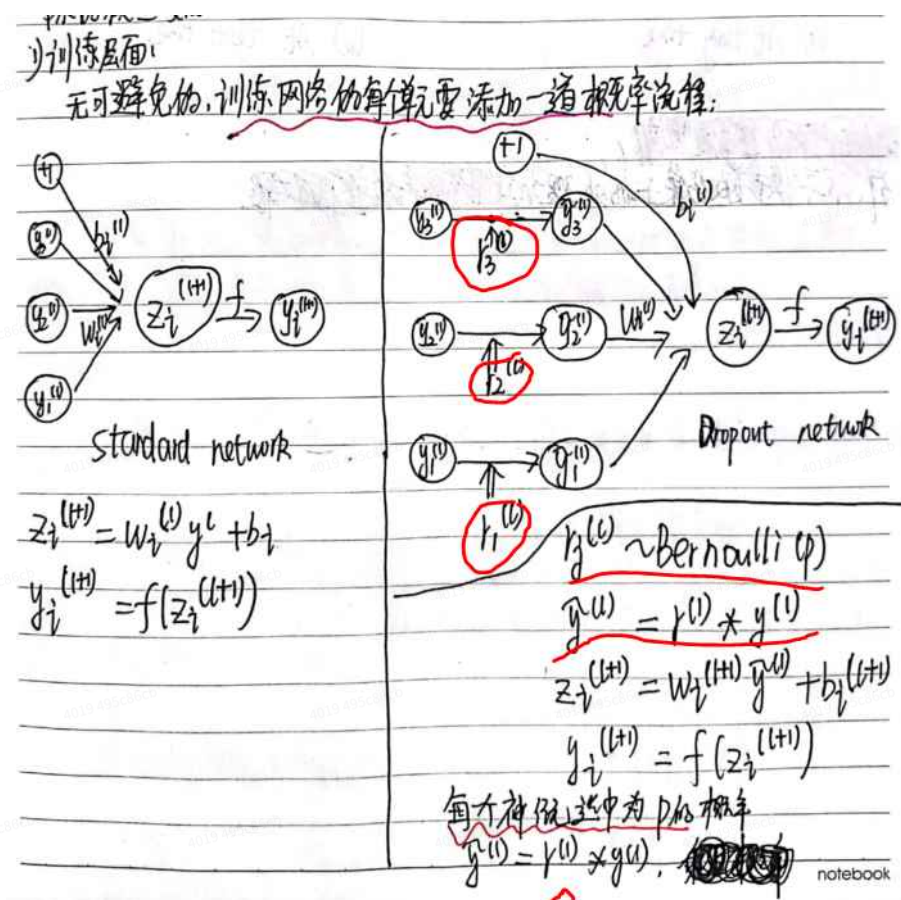 1)训练层面:
无可避免的,训练网络的每个单元要添加一道概率流程:
+1
y3(l)
y2(l)
y1(l)
bi(l)
wi(l)
zi(l+1)
f
yi(l+1)
standard network
zi(l+1) = wi(l) yl + bi
yi(l+1) = f(zi(l+1))
+1
bi(l)
y3(l)
ỹ3(l)
r3(l)
y2(l)
ỹ2(l)
r2(l)
wi(l)
zi(l+1)
f
yi(l+1)
y1(l)
ỹ1(l)
r1(l)
Dropout network
rj(l) ~Bernoulli (p)
ỹ(l) = r(l) * y(l)
zi(l+1) = wi(l+1) ỹ(l) + bi(l+1)
yi(l+1) = f(zi(l+1))
每个神经元选中为p的概率
ỹ(l) = r(l) * y(l),
notebook